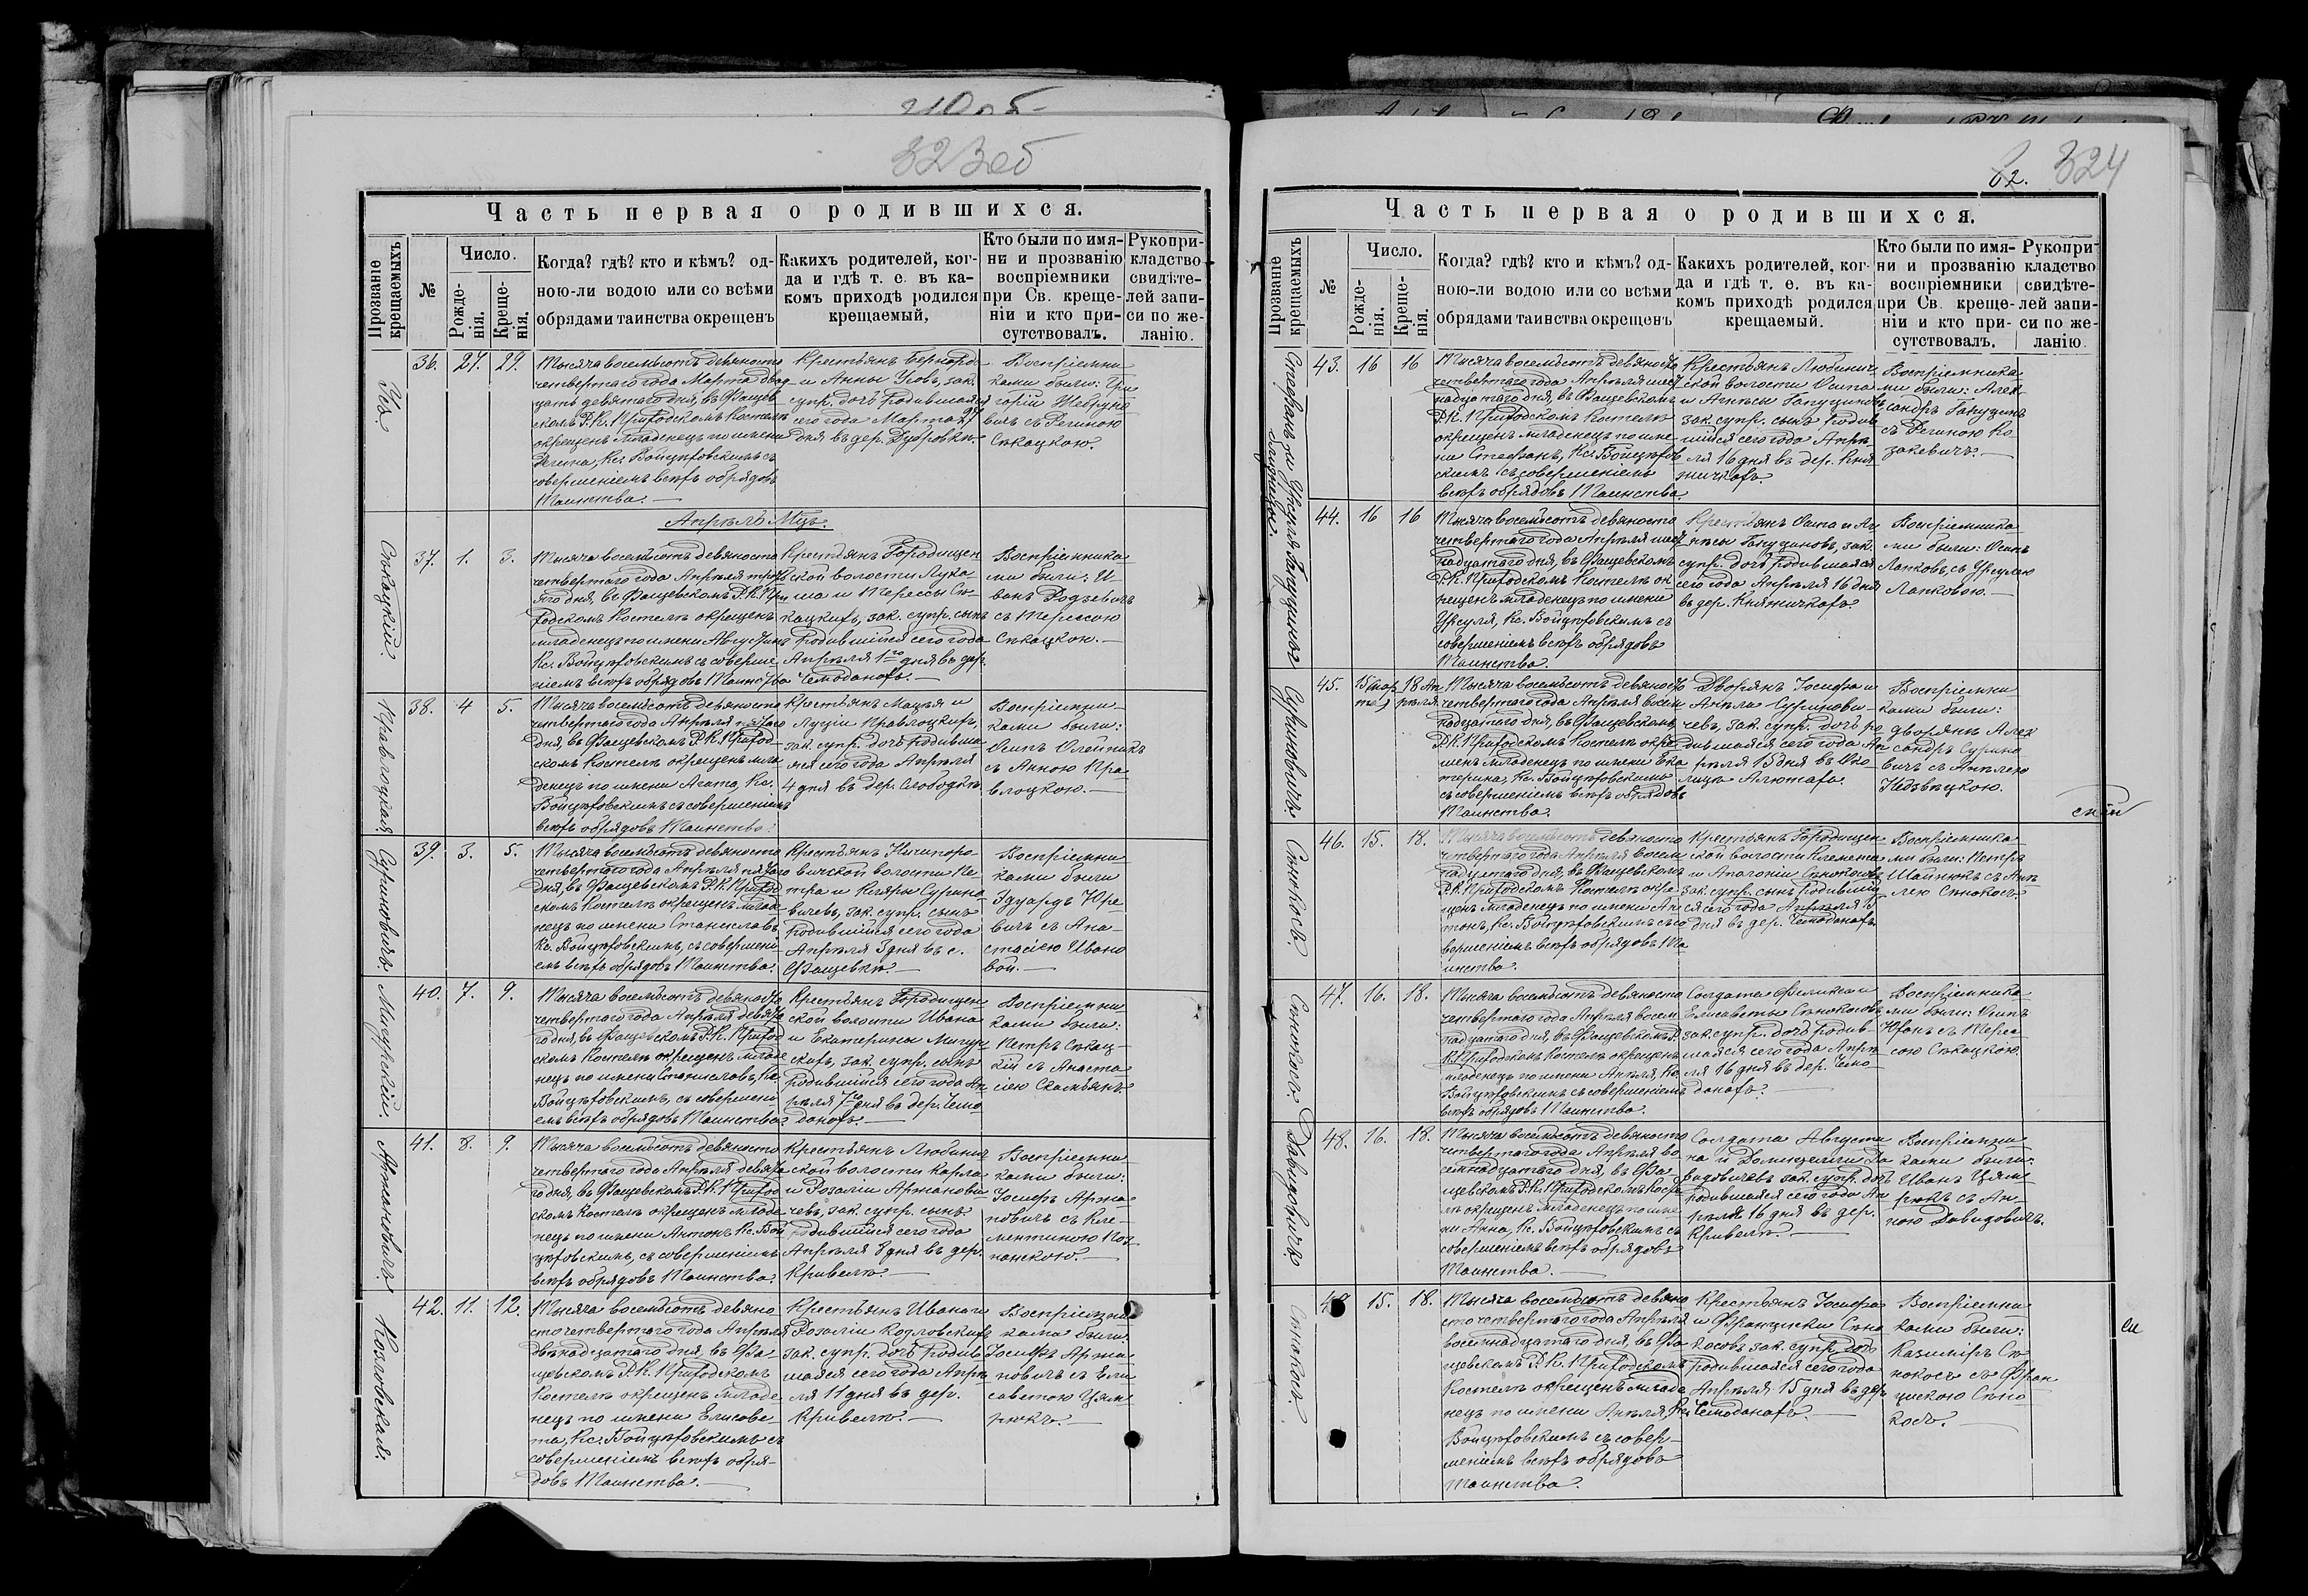 323об
Часть первая о родившихся.
Прозваніе крещаемыхъ
№
Число.
Рожде-
нія.
Креще-
нія.
Когда? гдѣ? кто и кѣмъ? од-
ною-ли водою или со всѣми
обрядами таинства окрещенъ
Какихъ родителей, ког-
да и гдѣ т. е. въ ка-
комъ приходѣ родился
крещаемый,
Кто были по имя-
ни и прозванію
воспріемники
при Св. креще-
ніи и кто при-
сутствовалъ.
Рукопри-
кладство
свидѣте-
лей запи-
си по же-
ланію.
Усъ.
36. 27. 29.
Тысяча восемьсотъ девяносто
четвертаго года Марта двад-
цать девятаго дня, въ Фащев-
скомъ Р. К. Приходскомъ Костелѣ
окрещенъ младенецъ по имени
Регина, Кс. Войцѣховскимъ съ
совершеніемъ всѣхъ обрядовъ
Таинства.
и Анны Усовъ, зак.
супр. дочь родившаяся
сего года Марта 27
дня въ дер. Дубровкѣ.
Воспріемни-
ками были:
съ Региною
Сѣкацкою.
Апрѣль Мцъ.
Сѣкацкій.
37. 1. 3.
Тысяча восемьсотъ девяносто
четвертаго года Апрѣля треть-
яго дня, въ Фащевскомъ Р. К. При-
ходскомъ Костелѣ окрещенъ
младенецъ по имени Августинъ
Кс. Войцѣховскимъ съ соверше-
ніемъ всѣхъ обрядовъ Таинства
Крестьянъ Городищен-
ской волости Лука-
ша и Терессы Сѣ-
кацкихъ, зак. супр. сынъ
родившійся сего года
Апрѣля 1го дня въ дер.
Чемоданахъ.
Воспріемника-
ми были: И-
ванъ Родзевичъ
съ Терессою
Сѣкацкою.
Правлоцкая.
38. 4 5.
Тысяча восемьсотъ девяносто
четвертаго года Апрѣля пятаго
дня, въ Фащевскомъ Р. К. Приход-
скомъ Костелѣ окрещенъ мла-
денецъ по имени Агата, Кс.
Войцѣховскимъ съ совершеніемъ
всѣхъ обрядовъ Таинства.
Крестьянъ Мацѣя и
Луціи Правлоцкихъ,
зак. супр. дочь родивша-
яся сего года Апрѣля
4 дня въ дер. Слободкѣ.
Воспріемни-
ками были:
Осипъ Олейникъ
съ Анною Пра-
влоцкою.
Суриновичъ.
39. 3. 5.
Тысяча восемьсотъ девяносто
четвертаго года Апрѣля пятаго
дня, въ Фащевскомъ Р. К. Приход-
скомъ Костелѣ окрещенъ младе-
нецъ по имени Станиславъ
Кс. Войцѣховскимъ, съ совершені-
емъ всѣхъ обрядовъ Таинства.
Крестьянъ Ничипоро-
вичской волости Пе-
тра и Кляры Сурино-
вичевъ, зак. супр. сынъ
родившійся сего года
Апрѣля 3 дня въ с.
Фащевкѣ.
Воспріемни-
ками были
Эдуардъ Юре-
вичъ съ Ана-
стасіею Ивано-
вой.
Мигурскій.
40. 7. 9.
Тысяча восемьсотъ девяносто
четвертаго года Апрѣля девята-
го дня, въ Фащевскомъ Р. К. Приход-
скомъ Костелѣ окрещенъ младе-
нецъ по имени Станиславъ, Кс.
Войцѣховскимъ, съ совершені-
емъ всѣхъ обрядовъ Таинства.
Крестьянъ Городищен-
ской волости Ивана
и Екатерины Мигур-
скихъ, зак. супр. сынъ
родившійся сего года Ап-
рѣля 7го дня въ дер. Чемо-
данахъ.
Воспріемни-
ками были:
Петръ Сѣкац-
кій съ Анаста-
сіею
Аржановичъ.
41. 8. 9.
Тысяча восемьсотъ девяносто
четвертаго года Апрѣля девята-
го дня, въ Фащевскомъ Р. К. Приход-
скомъ Костелѣ окрещенъ младе-
нецъ по имени Антонъ Кс. Вой-
цѣховскимъ, съ совершеніемъ
всѣхъ обрядовъ Таинства.
Крестьянъ Любинич-
ской волости Карла
и Розаліи Аржанови-
чевъ, зак. супр. сынъ
родившійся сего года
Апрѣля 8 дня въ дер.
Кривелѣ.
Воспріемни-
ками были:
Іосифъ Аржа-
новичъ съ Кле-
ментиною Поз-
нанскою.
Козловская.
42. 11. 12.
Тысяча восемьсотъ девяно-
сто четвертаго года Апрѣля
двѣнадцатаго дня, въ Фа-
щевскомъ Р. К. Приходскомъ
Костелѣ окрещенъ младе-
нецъ по имени Елисаве-
та, Кс. Войцѣховскимъ съ
совершеніемъ всѣхъ обря-
довъ Таинства.
Крестьянъ Ивана и
Розаліи Козловскихъ
зак. супр. дочь родив-
шаяся сего года Апрѣ-
ля 11 дня въ дер.
Кривелѣ.
Воспріемни-
ками были:
Іосифъ Аржа-
новичъ съ Ели-
саветою Цям-
рюкъ.
324
Часть первая о родившихся.
Прозваніе крещаемыхъ
№
Число.
Рожде-
нія.
Креще-
нія.
Когда? гдѣ? кто и кѣмъ? од-
ною-ли водою или со всѣми
обрядами таинства окрещенъ
Какихъ родителей, ког-
да и гдѣ т. е. въ ка-
комъ приходѣ родился
крещаемый.
Кто были по имя-
ни и прозванію
воспріемники
при Св. креще-
ніи и кто при-
сутствовалъ.
Рукопри-
кладство
свидѣте-
лей запи-
си по же-
ланію.
Стефанъ и Урсуля Гапушины
близнецы.
43. 16 16
Тысяча восемьсотъ девяносто
четвертаго года Апрѣля шест-
надцатаго дня, въ Фащевскомъ
Р. К. Приходскомъ Костелѣ
окрещенъ младенецъ по име-
ни Стефанъ, Кс. Войцѣхов-
скимъ съ совершеніемъ
всѣхъ обрядовъ Таинства.
Крестьянъ Любинич-
ской волости Осипа
и Агнѣсы Гапушиновъ,
зак. супр. сынъ родив-
шійся сего года Апрѣ-
ля 16 дня въ дер. Кня-
жичкахъ.
Воспріемника-
ми были: Алек-
сандръ Гапушинъ
съ Региною Ко-
закевичъ.
44. 16 16
Тысяча восемьсотъ девяносто
четвертаго года Апрѣля шест-
надцатаго дня, въ Фащевскомъ
Р. К. Приходскомъ Костелѣ ок-
рещенъ младенецъ по имени
Урсуля, Кс. Войцѣховскимъ съ
совершеніемъ всѣхъ обрядовъ
Таинства.
Крестьянъ Осипа и Аг-
нѣсы Гапушиновъ, зак.
супр. дочь родившаяся
сего года Апрѣля 16 дня
въ дер. Княжичкахъ.
Воспріемника-
ми были: Осипъ
Лапковъ, съ Урсулею
Лапковою.
Суриновичъ.
45. 15 18 Ап-
рѣля.
Тысяча восемьсотъ девяносто
четвертаго года Апрѣля восем-
надцатаго дня, въ Фащевскомъ
Р. К. Приходскомъ Костелѣ окре-
щенъ младенецъ по имени Ека-
терина, Кс. Войцѣховскимъ
съ совершеніемъ всѣхъ обрядовъ
Таинства.
Дворянъ Іосифа и
Анѣли Суринови-
чевъ, зак. супр. дочь ро-
дившаяся сего года Ап-
рѣля 15 дня въ Око-
лицѣ
Воспріемни-
ками были:
дворянъ Алек-
сандръ Сурино-
вичъ съ Анѣлею
Недзвѣцкою.
Сѣнокосъ.
46. 15. 18.
Тысяча восемьсотъ девяносто
четвертаго года Апрѣля восем-
надцатаго дня, въ Фащевскомъ
Р. К. Приходскомъ Костелѣ окре-
щенъ младенецъ по имени Ан-
тонъ, Кс. Войцѣховскимъ съ со-
вершеніемъ всѣхъ обрядовъ Та-
инства.
Крестьянъ Городищен-
ской волости Клементія
и Апалоніи Сѣнокосовъ
зак. супр. сынъ родивший-
ся сего года Апрѣля 15
дня въ дер. Чемоданахъ.
Воспріемника-
ми были: Петръ
Шайнюкъ съ Анѣ-
лею Сѣнокосъ.
Сѣнокосъ.
47. 16. 18.
Тысяча восемьсотъ девяносто
четвертаго года Апрѣля восем-
надцатаго дня, въ Фащевскомъ
Р. К. Приходскомъ Костелѣ окрещенъ
младенецъ по имени Анѣля, Кс.
Войцѣховскимъ съ совершеніемъ
всѣхъ обрядовъ Таинства.
Солдата Феликса и
Елисаветы Сѣнокосовъ
зак. супр. дочь родив-
шаяся сего года Апрѣ-
ля 16 дня въ дер. Чемо-
данахъ.
Воспріемника-
ми были: Осипъ
съ Терес-
сою Сѣкацкою.
Давидовичъ.
48. 16. 18.
Тысяча восемьсотъ девяносто
четвертаго года Апрѣля во-
семнадцатаго дня, въ Фа-
щевскомъ Р. К. Приходскомъ Косте-
лѣ окрещенъ младенецъ по име-
ни Анна, Кс. Войцѣховскимъ съ
совершеніемъ всѣхъ обрядовъ
Таинства.
Солдата Августи-
на и Домицеллии Да-
видовичевъ зак. супр. дочь
родившаяся сего года Ап-
рѣля 16 дня въ дер.
Кривелѣ.
Воспріемни-
ками были:
Иванъ Цям-
рюкъ съ Ан-
ною Давидовичъ.
Сѣнокосъ.
15. 18.
Тысяча восемьсотъ девяно-
сто четвертаго года Апрѣля
восемнадцатаго дня, въ Фа-
щевскомъ Р. К. Приходскомъ
Костелѣ окрещенъ младе-
нецъ по имени Анѣля, Кс.
Войцѣховскимъ съ совер-
шеніемъ всѣхъ обрядовъ
Таинства.
Крестьянъ Іосифа
и Францишки Сѣно-
косовъ зак. супр. дочь
родившаяся сего года
Апрѣля 15 дня въ дер.
Чемоданахъ.
Воспріемни-
ками были:
Казиміръ Сѣ-
нокосъ съ Фран-
цишкою Сѣно-
косъ.